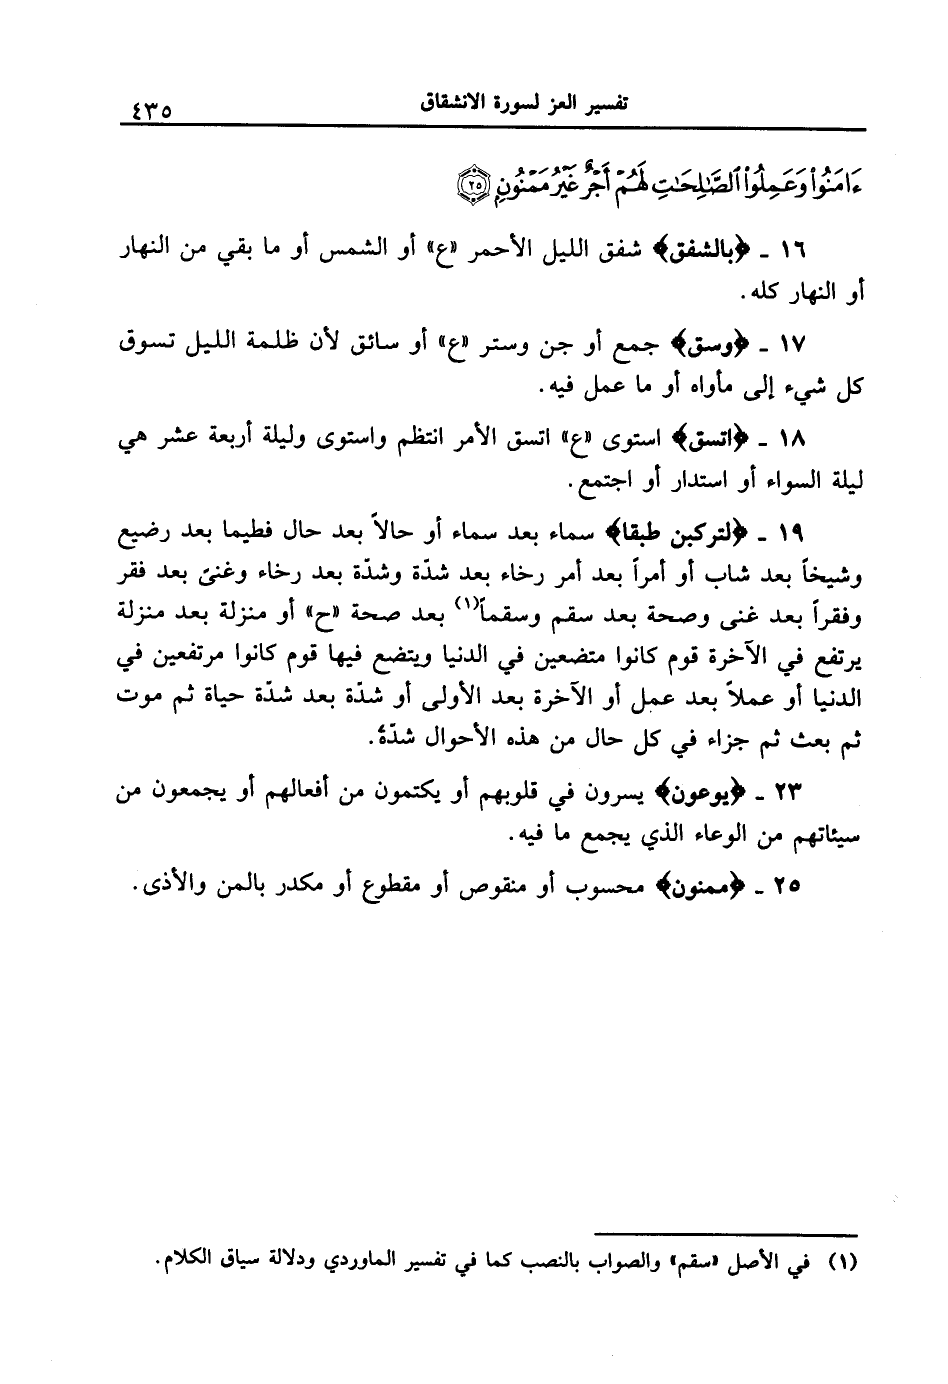 تفسير العز لسورة الانشقاق ٤٣٥
ءَامَنُوا۟ وَعَمِلُوا۟ ٱلصَّـٰلِحَـٰتِ لَهُمْ أَجْرٌ غَيْرُ مَمْنُونٍ ٢٥
١٦ ـ ﴿بالشفق﴾ شفق الليل الأحمر «ع» أو الشمس أو ما بقي من النهار
أو النهار كله.
١٧ ـ ﴿وسق﴾ جمع أو جن وستر «ع» أو سائق لأن ظلمة الليل تسوق
كل شيء إلى مأواه أو ما عمل فيه.
١٨ ـ ﴿اتسق﴾ استوى «ع» اتسق الأمر انتظم واستوى وليلة أربعة عشر هي
ليلة السواء أو استدار أو اجتمع.
١٩ ـ ﴿لتركبن طبقا﴾ سماء بعد سماء أو حالاً بعد حال فطيما بعد رضيع
وشيخاً بعد شاب أو أمراً بعد أمر رخاء بعد شدّة وشدّة بعد رخاء وغنىً بعد فقر
وفقراً بعد غنى وصحة بعد سقم وسقماً(١) بعد صحة «ح» أو منزلة بعد منزلة
يرتفع في الآخرة قوم كانوا متضعين في الدنيا ويتضع فيها قوم كانوا مرتفعين في
الدنيا أو عملاً بعد عمل أو الآخرة بعد الأولى أو شدّة بعد شدّة حياة ثم موت
ثم بعث ثم جزاء في كل حال من هذه الأحوال شدّةٌ.
٢٣ ـ ﴿يوعون﴾ يسرون في قلوبهم أو يكتمون من أفعالهم أو يجمعون من
سيئاتهم من الوعاء الذي يجمع ما فيه.
٢٥ ـ ﴿ممنون﴾ محسوب أو منقوص أو مقطوع أو مكدر بالمن والأذى.
(١) في الأصل «سقم» والصواب بالنصب كما في تفسير الماوردي ودلالة سياق الكلام.